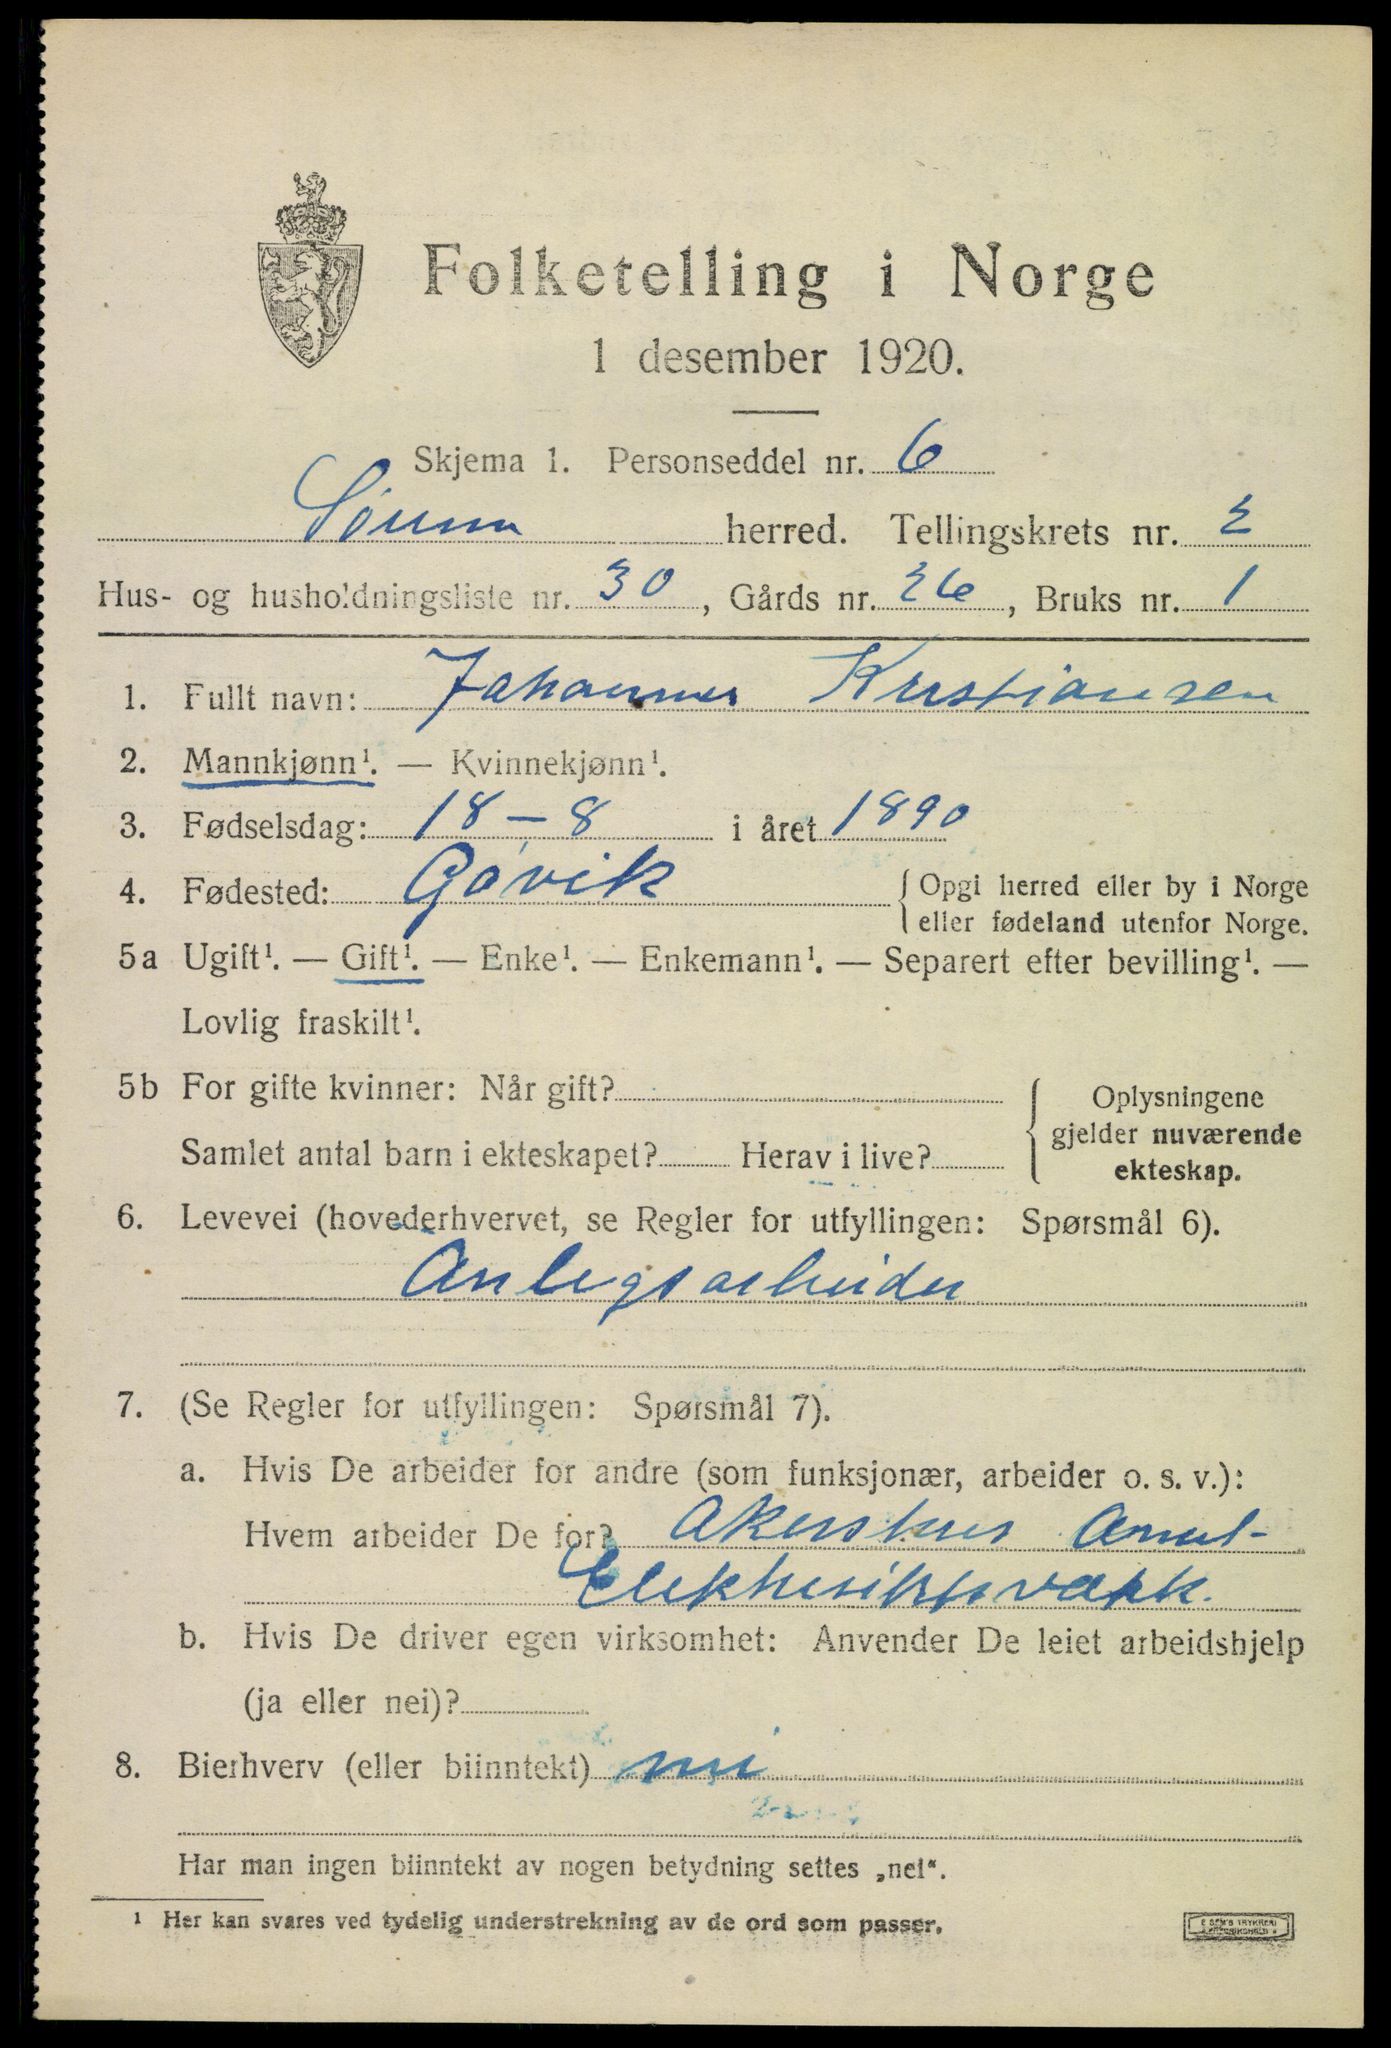 Folketelling i Norge
1 desember 1920.
Skjema 1. Personseddel nr. 6
Sørum herred. Tellingskrets nr. 2
Hus- og husholdningsliste nr. 30, Gårds nr. 26, Bruks nr. 1
1. Fullt navn: Johannes Kristiansen
2. Mannkjønn¹. — Kvinnekjønn¹.
3. Fødselsdag: 18 – 8 i året 1890
4. Fødested: Gøvik {Opgi herred eller by i Norge
eller fødeland utenfor Norge.
5a Ugift¹. — Gift¹. — Enke¹. — Enkemann¹. — Separert efter bevilling¹. —
Lovlig fraskilt¹.
5b For gifte kvinner: Når gift?
Samlet antal barn i ekteskapet? Herav i live?
Oplysningene
gjelder nuværende
ekteskap.
6. Levevei (hovederhvervet, se Regler for utfyllingen: Spørsmål 6).
Anlegsarbeider
7. (Se Regler for utfyllingen: Spørsmål 7).
a. Hvis De arbeider for andre (som funksjonær, arbeider o. s. v.):
Hvem arbeider De for? Akershus Amt-
Elektrisitetsværk.
b. Hvis De driver egen virksomhet: Anvender De leiet arbeidshjelp
(ja eller nei)?
8. Bierhverv (eller biinntekt) nei
Har man ingen biinntekt av nogen betydning settes „nei“.
¹ Her kan svares ved tydelig understrekning av de ord som passer.